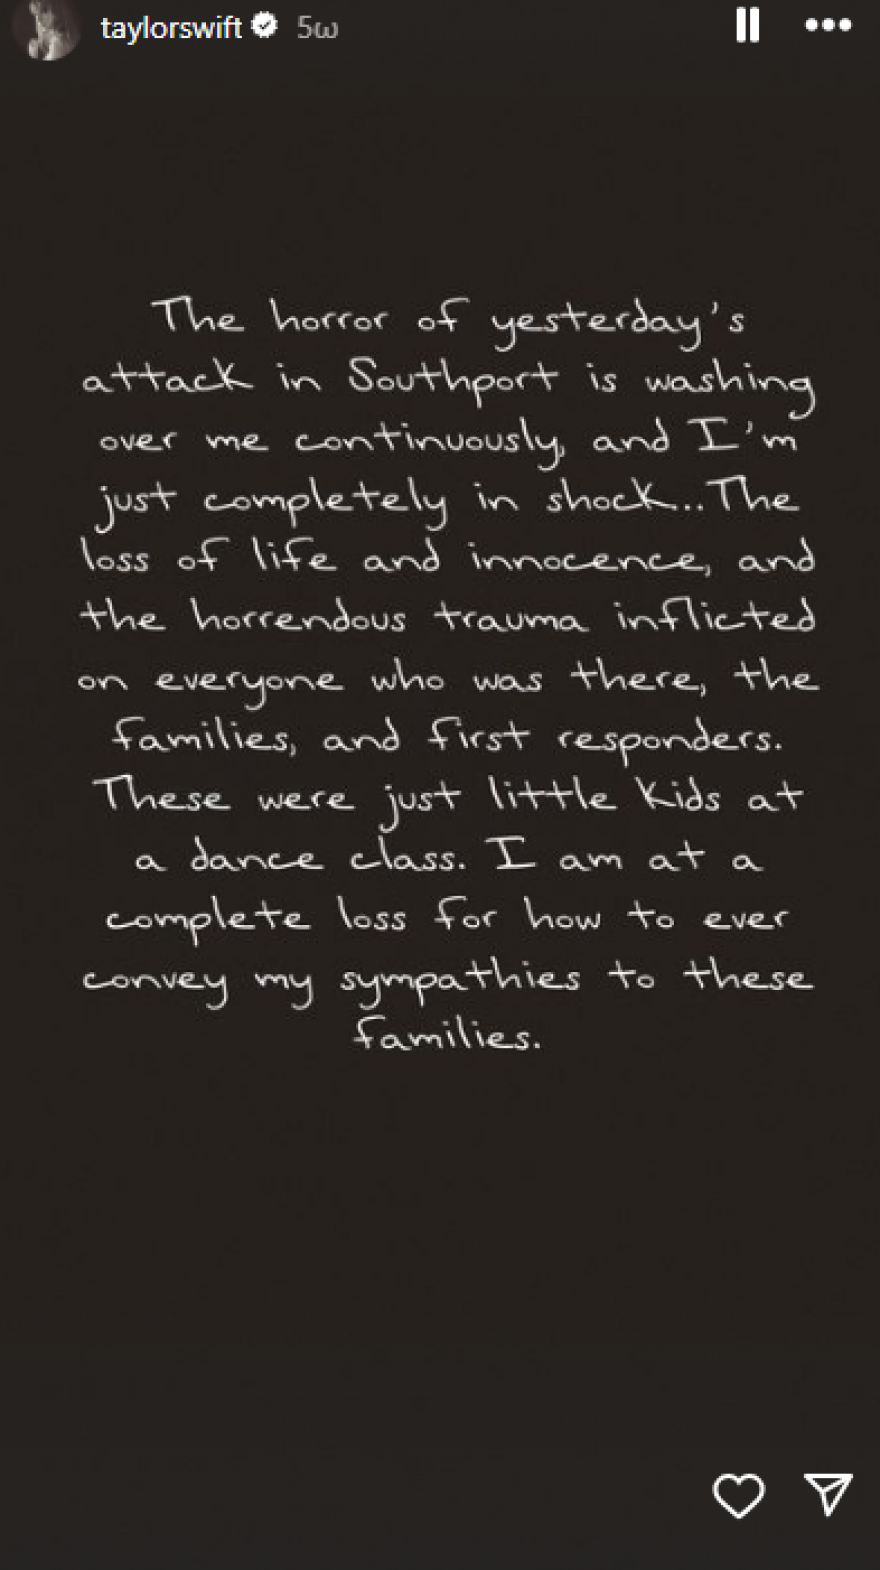 taylorswift 5ω
The horror of yesterday's
attack in Southport is washing
over me continuously, and I'm
just completely in shock...The
loss of life and innocence, and
the horrendous trauma inflicted
on everyone who was there, the
families, and first responders.
These were just little kids at
a dance class. I am at a
complete loss for how to ever
convey my sympathies to these
families.